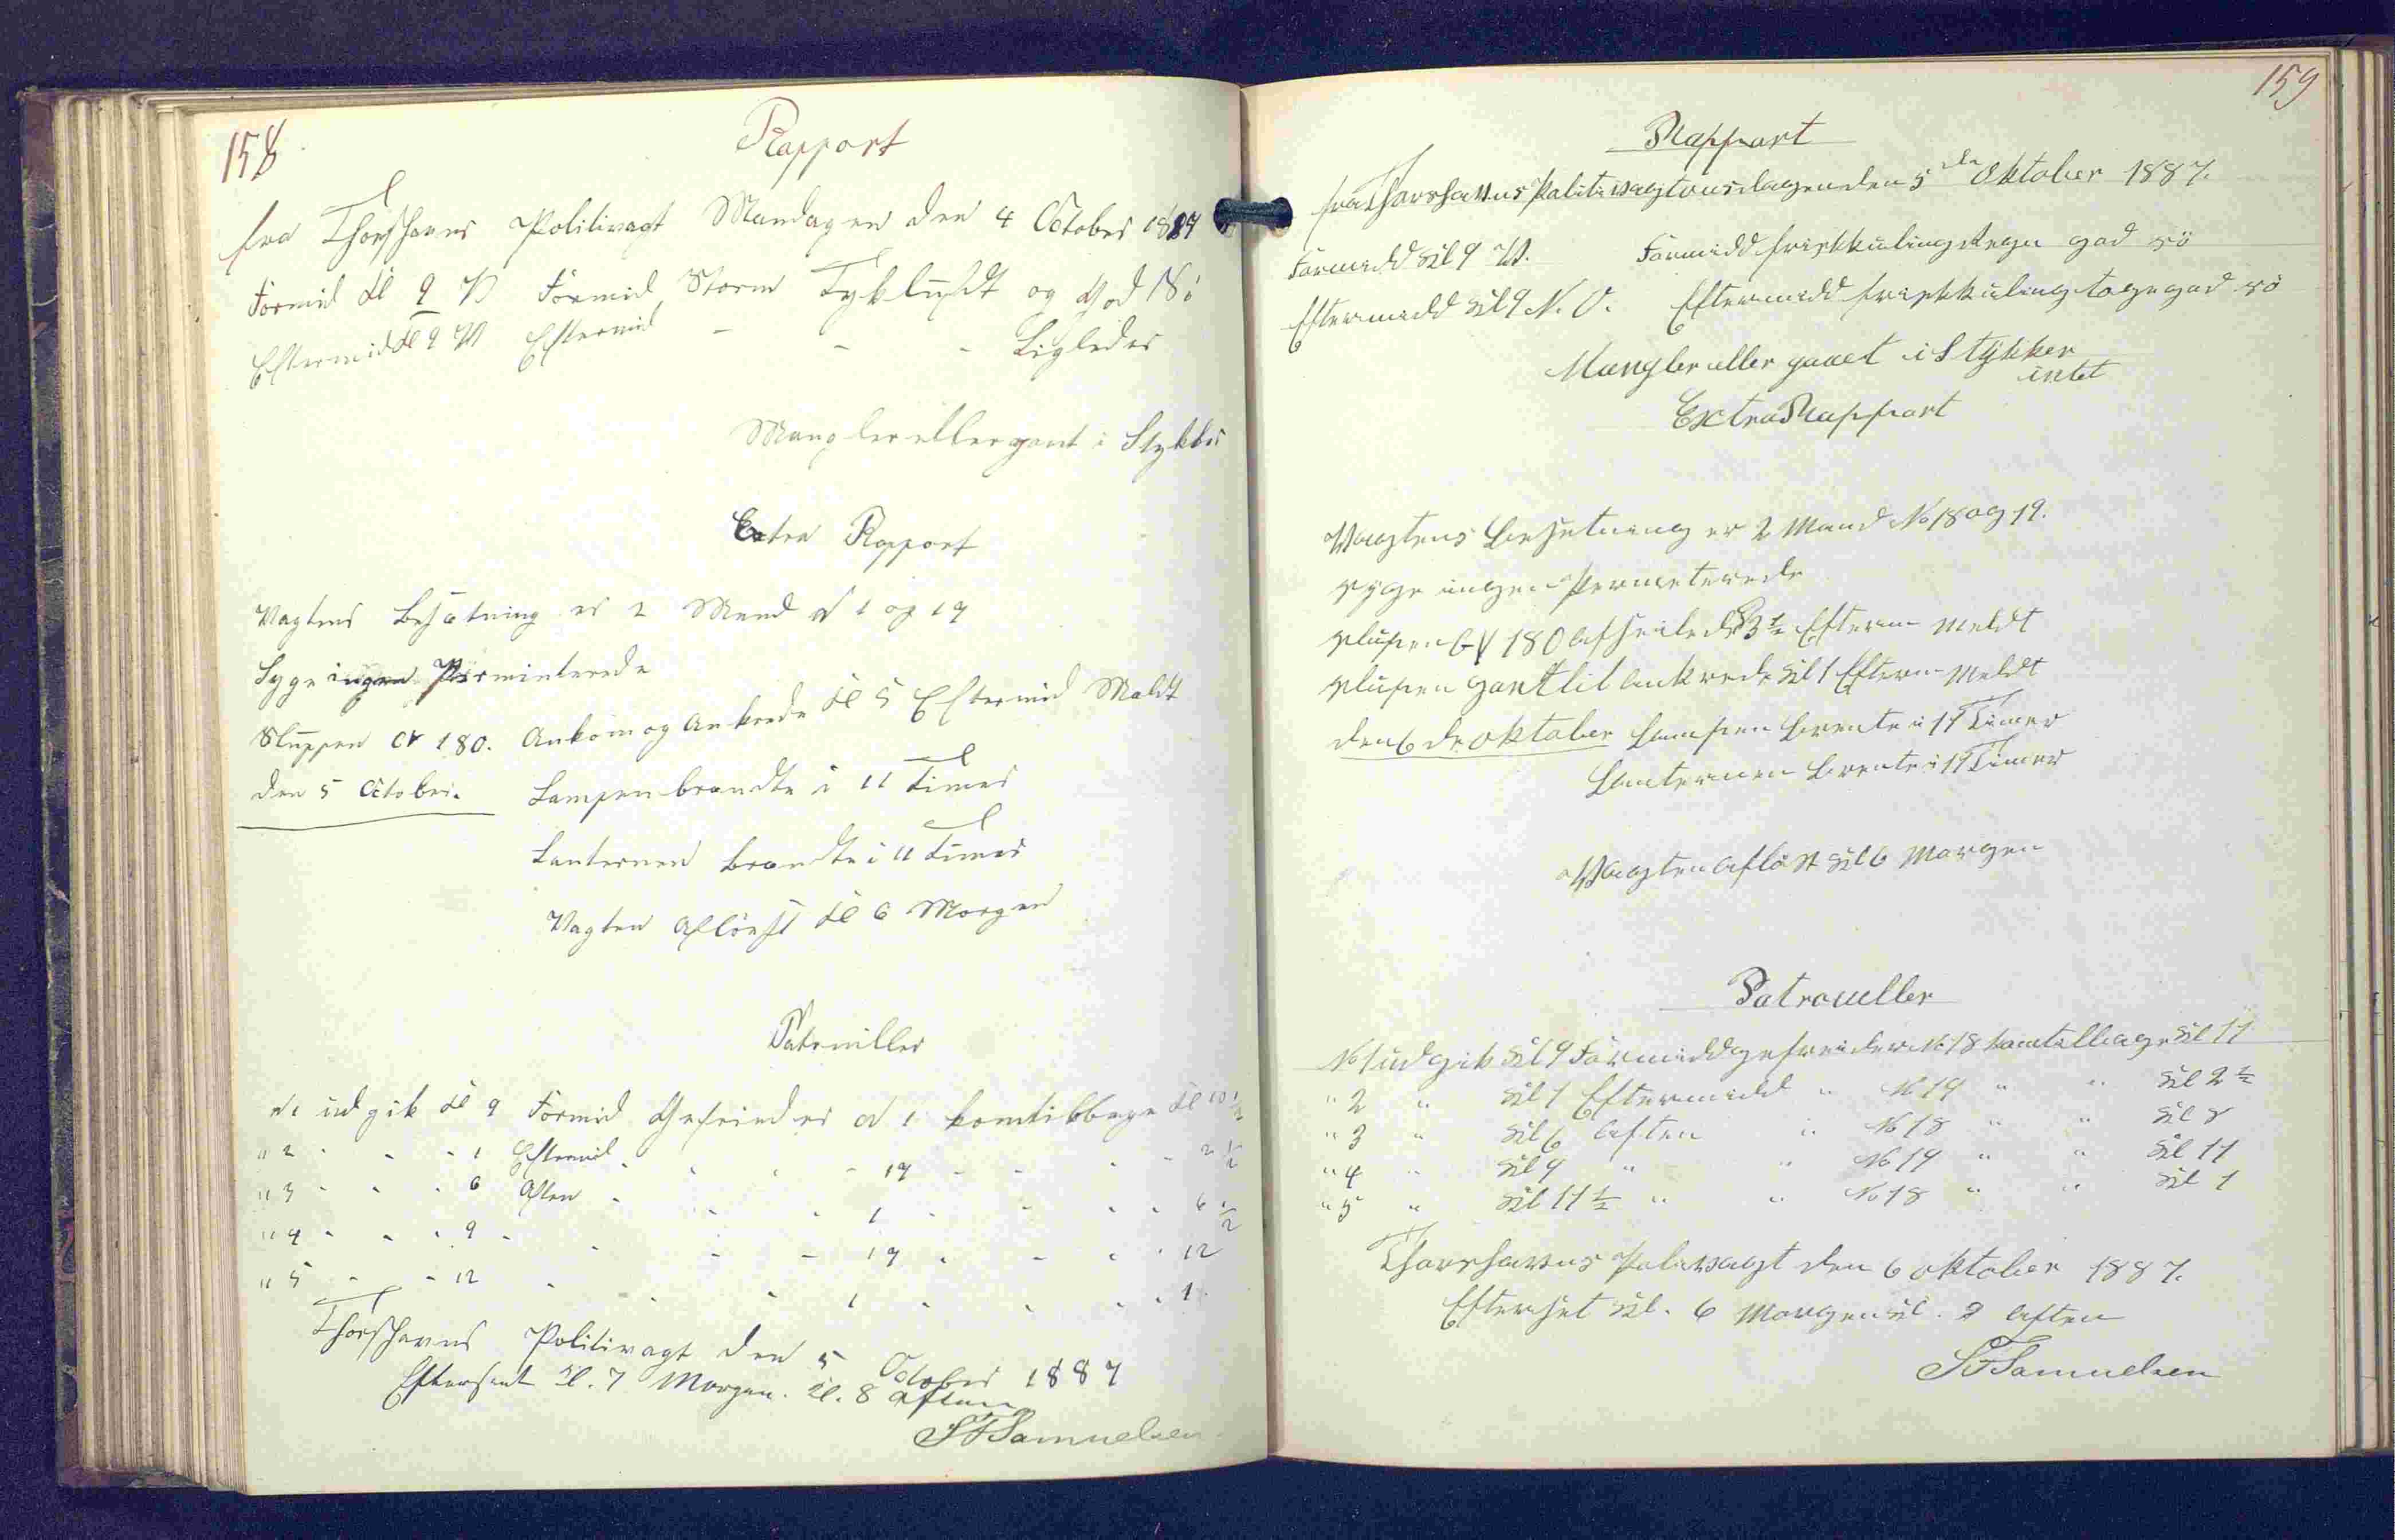 158
Rapport
fra Thorshavns Politivagt Mandagen den 4 October 1887
Formid Kl 9 V Formid Storm Tykluft og god Sö
Eftermid Kl 9 V Eftermid - - - Ligledes
Mangler eller gaaet i Stykker
Extra Rapport
Vagtens Besætning er 2 Mand N 1 og 19
Syge ingen Perminterede
Sluppen 180. Ankom og Ankrede Kl 5 Eftermid Meldt
den 5 October. Lampen brændte i 11 Timer
Lanternen brændte i 11 Timer
Vagten Aflöst Kl 6 Morgen
Patruiller
N 1 udgik Kl 9 Formid Gefreider N 1 kom tilbage Kl 10 1/2
" 2 - - - 1 Eftermid - - - - 19 - - - - 2 1/2
" 3 - - - 6 Aften - - - 1 - - - - 6 1/2
" 4 - - - 9 - - - - 19 - - - - 12
" 5 - - 12 - - - 1 - - - - 1
Thorshavns Politivagt den 5 October 1887
Efterseet Kl. 7 Morgen. Kl. 8 Aften
SFSamuelsen
159
Rapport
fra Thorshavns Politivagt onsdagen den 5de Oktober 1887.
Formidd Kl 9 V. Formidd frisk kuling Regn god sö
Eftermidd Kl 9 N. O. Eftermidd frisk kuling taage god sö
Mangler eller gaaet i Stykker
intet
Extra Rapport
Vagtens Besetning er 2 Mand No 18 og 19.
syge ingen Permeterede
slupen 180 afseilede Kl 3 1/2 Efterm Meldt
slupen ankrede Kl 1 Efterm Meldt
den 6 de oktober Lampen brente i 11 Timer
Lanternen brente i 11 Timer
Vagten aflöst Kl 6 Morgen
Patroueller
No 1 udgik Kl 9 Formidd gefreider No 18 kom tilbage Kl 11
" 2 " Kl 1 Eftermidd " No 19 " " Kl 2 1/2
" 3 " Kl 6 Aften " No 18 " " Kl 8
" 4 " Kl 9 " " No 19 " " Kl 11
" 5 " Kl 11 1/2 " " No 18 " " Kl 1
Thorshavns Polivagt den 6 oktober 1887.
Efterset Kl. 6 Morgen Kl. 9 Aften
SFSamuelsen